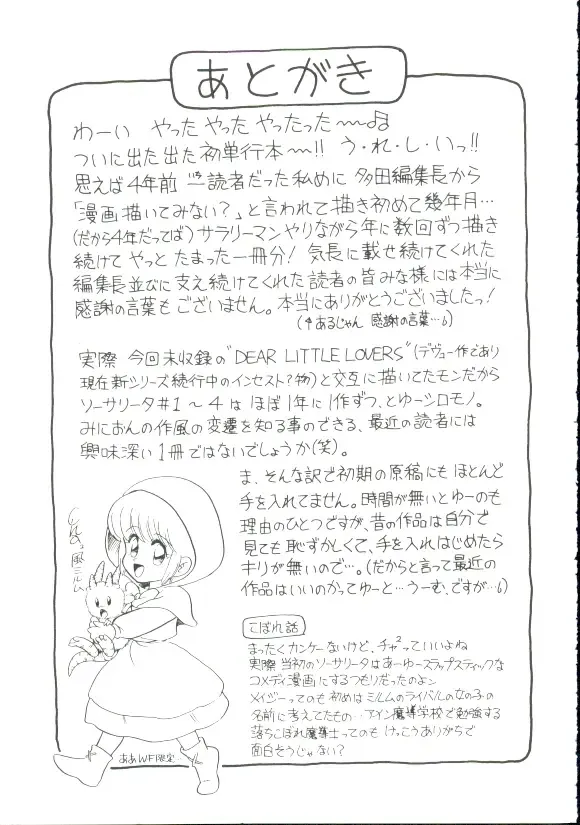 あとがき
わーい やった やった やったった〜〜♫
ついに出た出た初単行本〜〜!! う・れ・し・いっ!!
思えば4年前 一読者だった私めに 多田編集長から
「漫画描いてみない?」と言われて描き初めて幾年月…
(だから4年だってば)サラリーマンやりながら年に数回ずつ描き
続けて やっと たまった一冊分! 気長に載せ続けてくれた
編集長並びに支え続けてくれた読者の皆みな様には本当に
感謝の言葉もございません。本当にありがとうございましたっ!
(↑あるじゃん 感謝の言葉…6)
実際 今回未収録の“DEAR LITTLE LOVERS”(デヴュー作であり
現在新シリーズ続行中のインセスト?物)と交互に描いてたモンだから
ソーサリータ#1〜4は ほぼ1年に1作ずつ、とゆーシロモノ。
みにおんの作風の変遷を知る事のできる、最近の読者には
興味深い1冊ではないでしょうか(笑)。
ま、そんな訳で初期の原稿にも ほとんど
手を入れてません。時間が無いとゆーのも
理由のひとつですが、昔の作品は自分で
見ても恥ずかしくて、手を入れはじめたら
キリが無いので…。(だからと言って最近の
作品はいいのかってゆーと…うーむ、ですが…6)
風ミルム
こぼれ話
まったくカンケーないけど、チャ²っていいよね
実際 当初のソーサリータはあーゆースラップスティックな
コメディ漫画にするつもりだったのよン
メイジーってのも初めはミルムのライバルの女の子の
名前に考えてたもの…アイン魔導学校で勉強する
落ちこぼれ魔導士ってのも けっこうありがちで
面白そうじゃない?
ああWF限定…